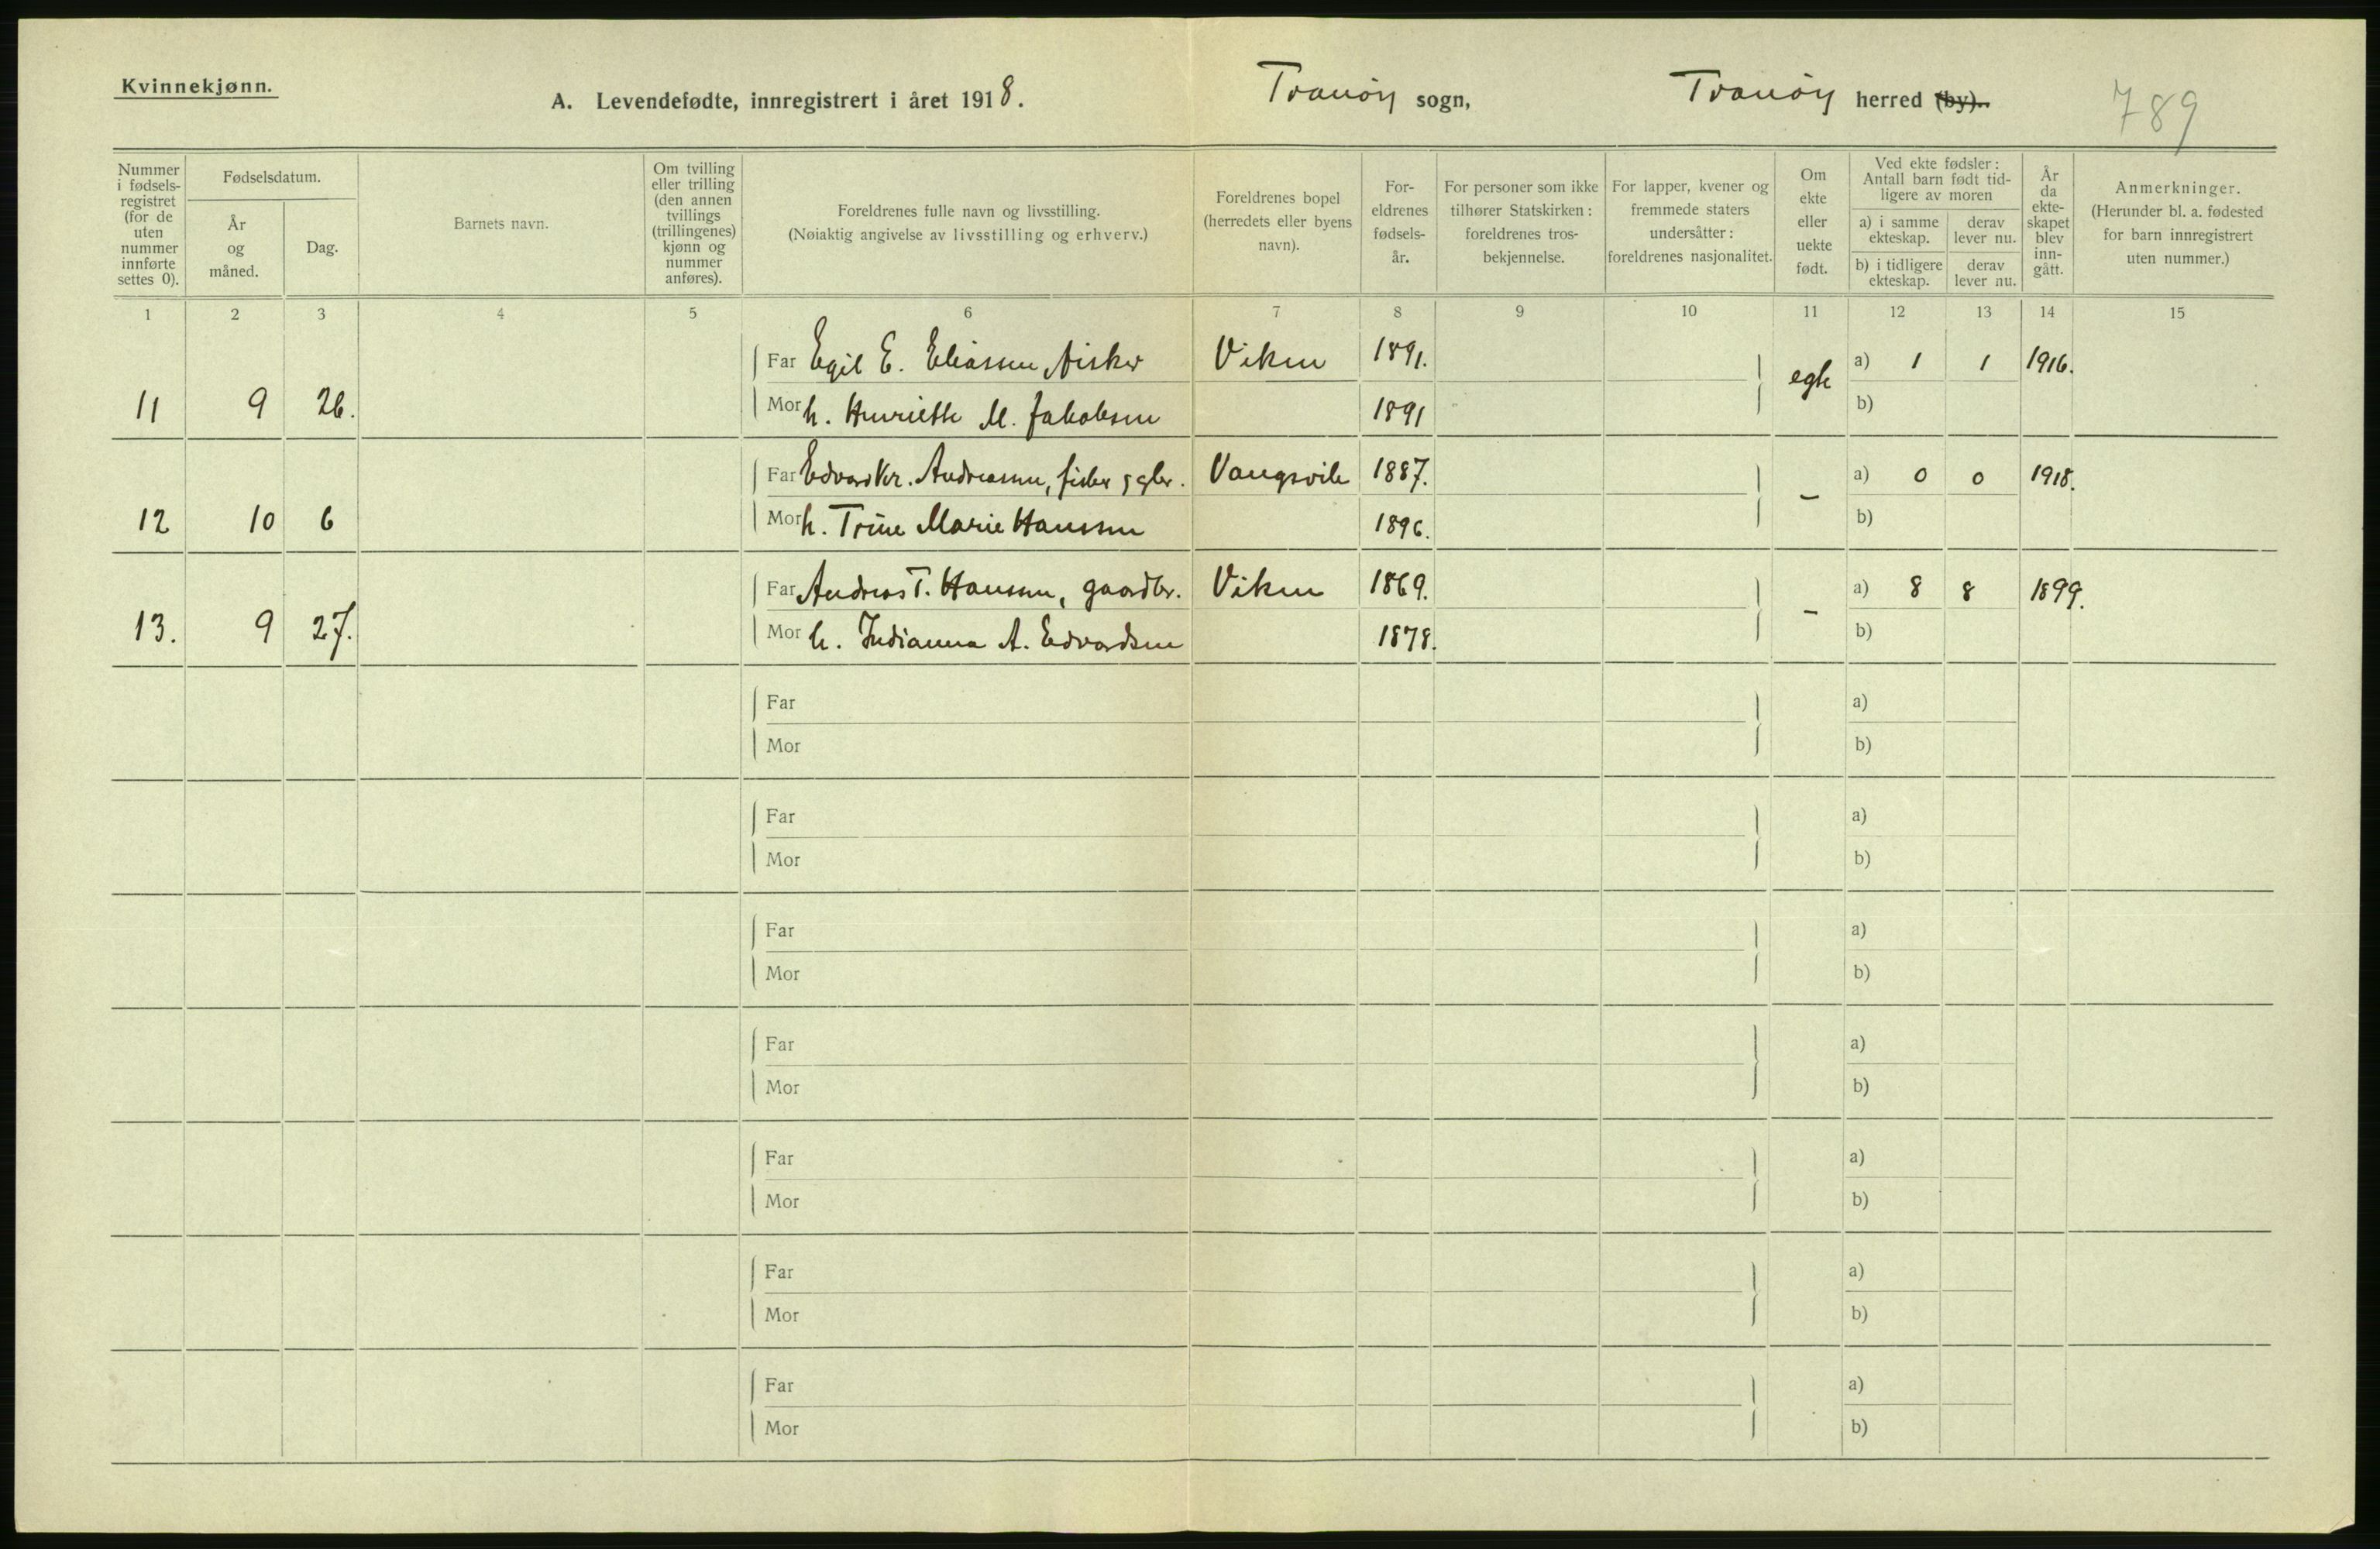 Kvinnekjønn.
A. Levendefødte, innregistrert i året 1918.
Tranöy sogn,
Tranöy herred (by).
789
Nummer
i fødsels-
registret
(for de
uten
nummer
innførte
settes 0).
Fødselsdatum.
År
og
måned.
Dag.
Barnets navn.
Om tvilling
eller trilling
(den annen
tvillings
(trillingenes)
kjønn og
nummer
anføres).
Foreldrenes fulle navn og livsstilling.
(Nøiaktig angivelse av livsstilling og erhverv.)
Foreldrenes bopel
(herredets eller byens
navn).
For-
eldrenes
fødsels-
år.
For personer som ikke
tilhører Statskirken:
foreldrenes tros-
bekjennelse.
For lapper, kvener og
fremmede staters
undersåtter:
foreldrenes nasjonalitet.
Om
ekte
eller
uekte
født.
Ved ekte fødsler:
Antall barn født tid-
ligere av moren
a) i samme
ekteskap.
derav
lever nu.
b) i tidligere
ekteskap.
derav
lever nu.
År
da
ekte-
skapet
blev
inn-
gått.
Anmerkninger.
(Herunder bl. a. fødested
for barn innregistrert
uten nummer.)
1 2 3 4 5 6 7 8 9 10 11 12 13 14 15
Far Egil E. Eliassen, fisker Viken 1891. a) 1 1 1916.
egte
11 9 26. Mor h. Henriette M. Jakobsen 1891 b)
Far Edvard Kr. Andreassen, fisker Vangsvik 1887. a) 0 0 1918.
–
12 10 6 Mor h. Trine Marie Hanssen 1896. b)
Far Andreas T. Hanssen, gaardbr. Viken 1869. a) 8 8 1899.
–
13. 9 27. Mor h. Indianna A. Edvardsen 1878. b)
Far a)
Mor b)
Far a)
Mor b)
Far a)
Mor b)
Far a)
Mor b)
Far a)
Mor b)
Far a)
Mor b)
Far a)
Mor b)